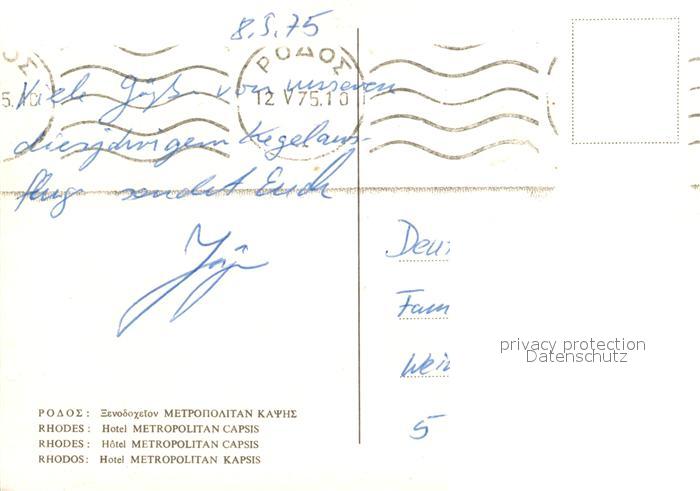 8.5.75
ΡΟΔΟΣ
12 V 75.10
Viele Grüße von unserem
diesjährigem Kegelaus-
flug sendet Euch
Fam
privacy protection
Datenschutz
5
ΡΟΔΟΣ: Ξενοδοχεῖον ΜΕΤΡΟΠΟΛΙΤΑΝ ΚΑΨΗΣ
RHODES: Hotel METROPOLITAN CAPSIS
RHODES: Hôtel METROPOLITAN CAPSIS
RHODOS: Hotel METROPOLITAN KAPSIS